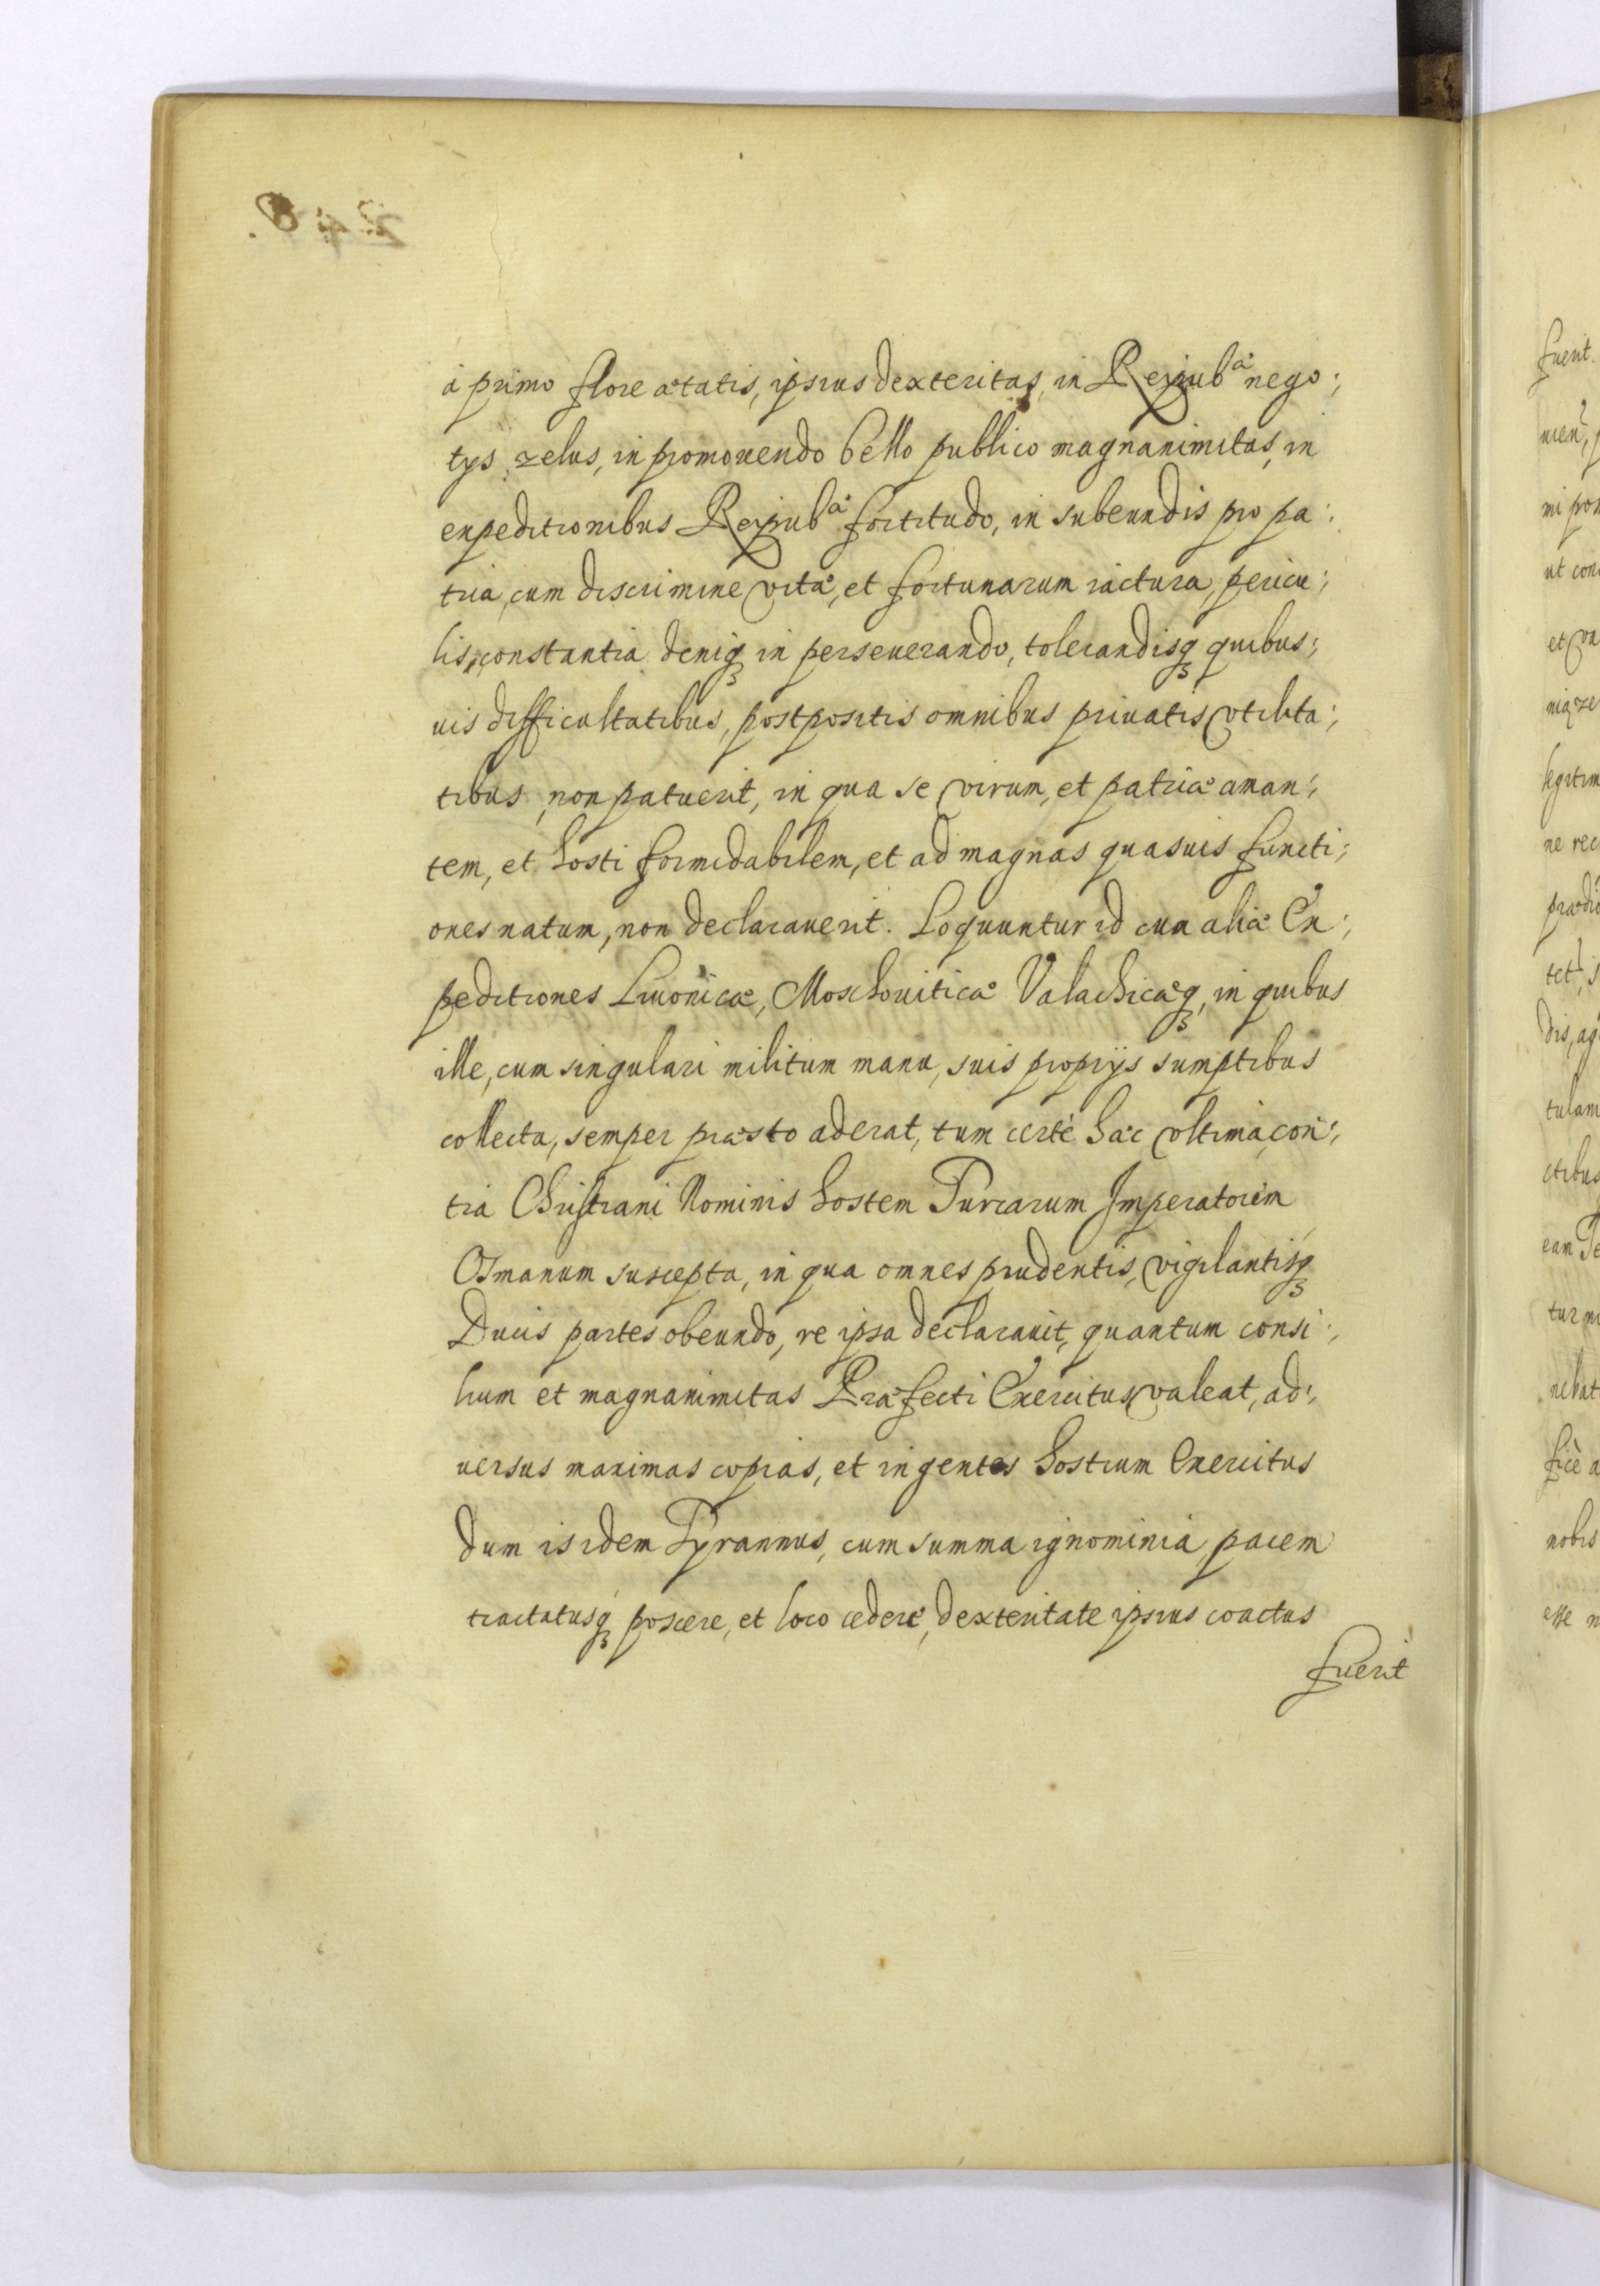 à primo flore ætatis, ipsius dexteritas, in Reipubᵃᵉ nego:,
tys zelus, in promouendo bello publico magnanimitas, in
expeditionibus Reipubᵃᵉ fortitudo, in subeundis pro pa:,
tria, cum discrimine vitæ, et fortunarum iactura, pericu:,
lis, constantia deniqꝫ in perseuerando, tolerandisqꝫ quibus:,
uis difficultatibus, postpositis omnibus priuatis vtilita:,
tibus, non patuerit, in qua se virum, et patriæ aman:,
tem, et hosti formidabilem, et ad magnas quasuis functi:,
ones natum, non declarauerit. Loquuntur id cum aliæ Ex:,
peditiones Liuonicæ, Moschouiticæ Valachicæqꝫ, in quibus
ille, cum singulari militum manu, suis proprijs sumptibus
collecta, semper præsto aderat, tum certè hæc vltima, con:,
tra Christiani Nominis hostem Turcarum Imperatorem
Osmanum suscepta, in qua omnes prudentis, vigilantisqꝫ
Ducis partes obeundo, re ipsa declarauit, quantum consi:,
lium et magnanimitas Præfecti Exercitus valeat, ad:,
uersus maximas copias, et ingentes hostium Exercitus
dum is idem Tyrannus, cum summa ignominia, pacem
tractatusqꝫ poscere, et loco cedere, dexteritate ipsius coactus
fuerit